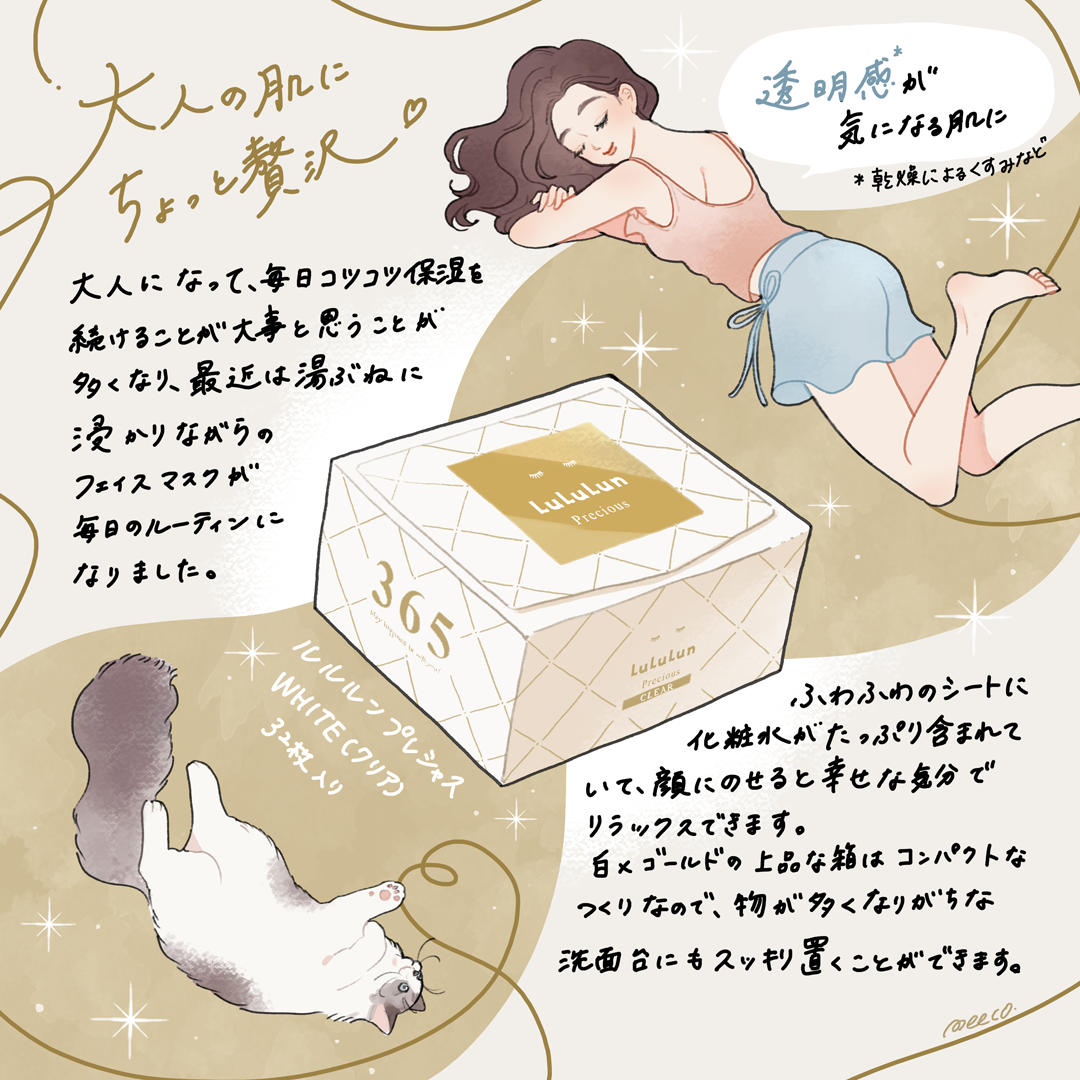 大人の肌に
ちょっと贅沢♡
透明感*が
気になる肌に
*乾燥によるくすみなど
大人になって、毎日コツコツ保湿を
続けることが大事と思うことが
多くなり、最近は湯ぶねに
浸かりながらの
フェイスマスクが
毎日のルーティンに
なりました。
LuLuLun
Precious
365
LuLuLun
Precious
CLEAR
ルルルンプレシャス
WHITE(クリア)
32枚入り
ふわふわのシートに
化粧水がたっぷり含まれて
いて、顔にのせると幸せな気分で
リラックスできます。
白×ゴールドの上品な箱はコンパクトな
つくりなので、物が多くなりがちな
洗面台にもスッキリ置くことができます。